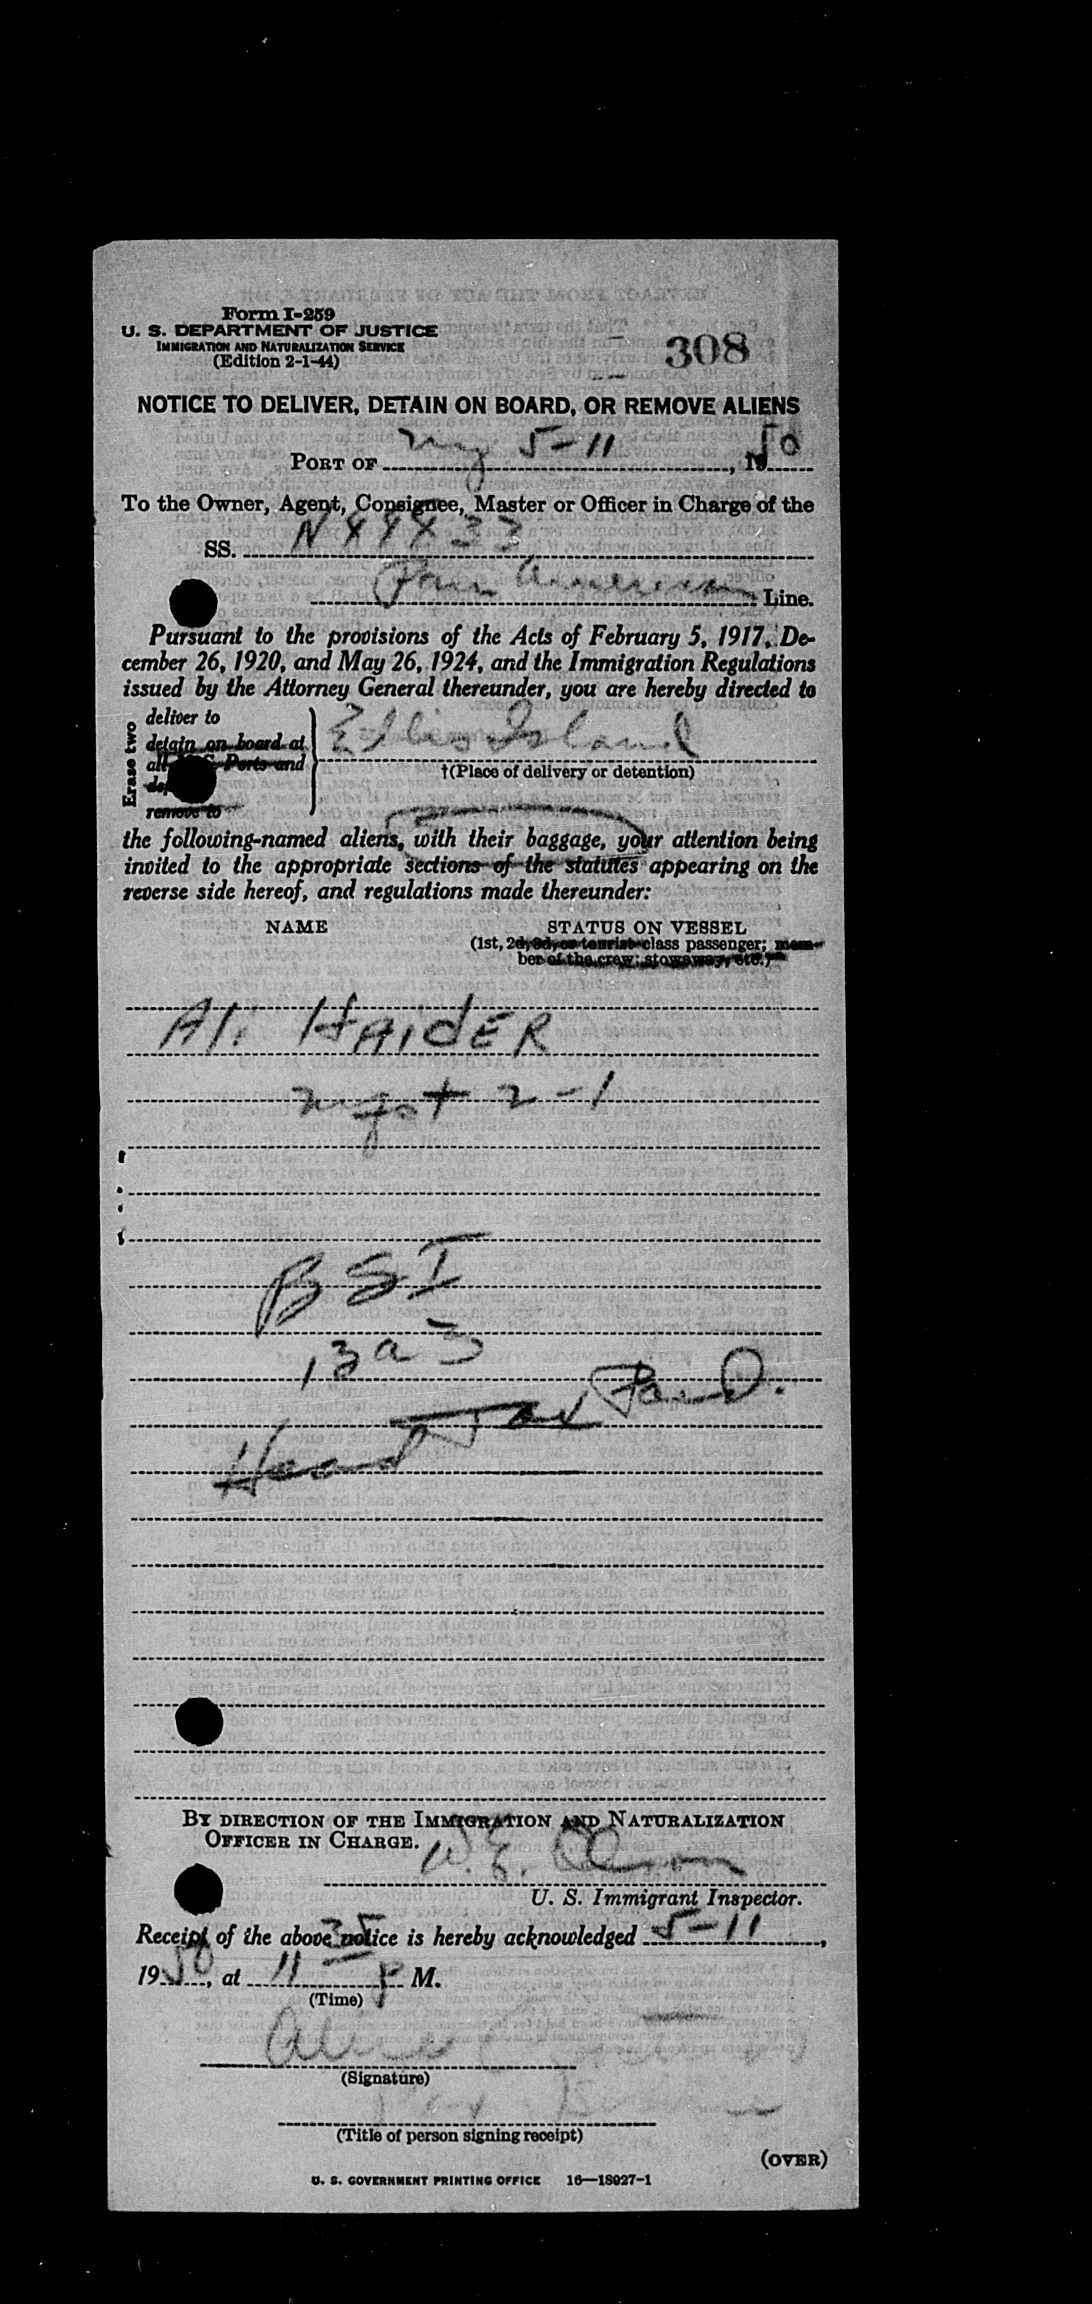 Form I-259
U. S. DEPARTMENT OF JUSTICE
IMMIGRATION AND NATURALIZATION SERVICE
(Edition 2-1-44)
308
NOTICE TO DELIVER, DETAIN ON BOARD, OR REMOVE ALIENS
PORT OF ny 5-11, 1950
To the Owner, Agent, Consignee, Master or Officer in Charge of the
SS.
Pan American Line.
Pursuant to the provisions of the Acts of February 5, 1917, De-
cember 26, 1920, and May 26, 1924, and the Immigration Regulations
issued by the Attorney General thereunder, you are hereby directed to
Erase two
deliver to
detain on board at
all Ports and
remove to
Ellis Island
†(Place of delivery or detention)
the following-named aliens, with their baggage, your attention being
invited to the appropriate sections of the statutes appearing on the
reverse side hereof, and regulations made thereunder:
NAME
STATUS ON VESSEL
(1st, 2d, 3d, or tourist class passenger; mem-
ber of the crew; stowaway, etc.)
Ali HAIDER
2-1
BSI
13a3
Head Tax Paid.
BY DIRECTION OF THE IMMIGRATION AND NATURALIZATION
OFFICER IN CHARGE.
W. E.
U. S. Immigrant Inspector.
Receipt of the above notice is hereby acknowledged 5-11,
1950, at 11 35 p M.
(Time)
(Signature)
(Title of person signing receipt)
(OVER)
U. S. GOVERNMENT PRINTING OFFICE 16—18027-1